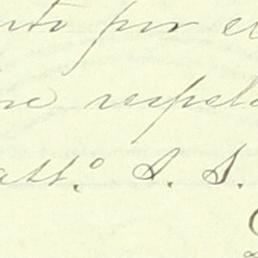 nto por el
re respeto
att.º S. S.